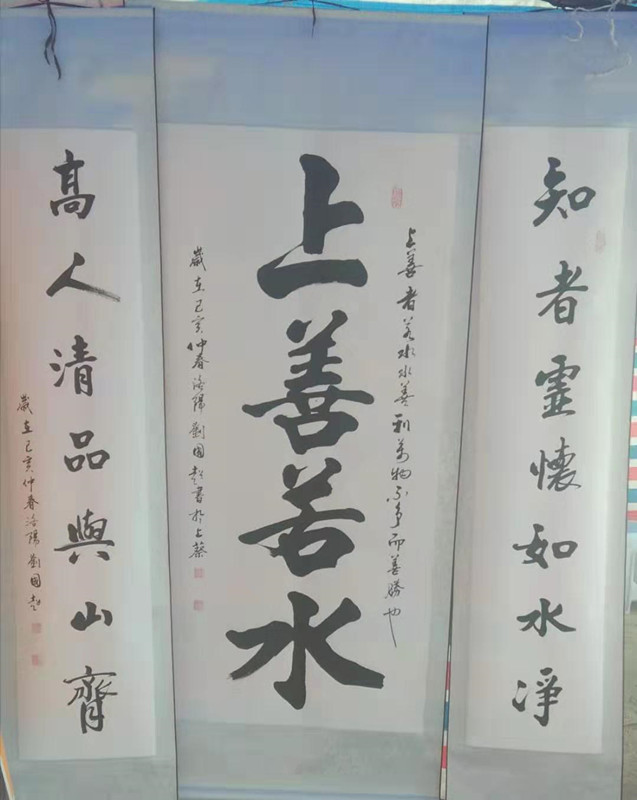 知者靈懷如水淨
上善者若水水善利萬物不爭而善勝也
上善若水
歲在己亥仲春洛陽劉國起書於上蔡
高人清品與山齊
歲在己亥仲春洛陽劉國起